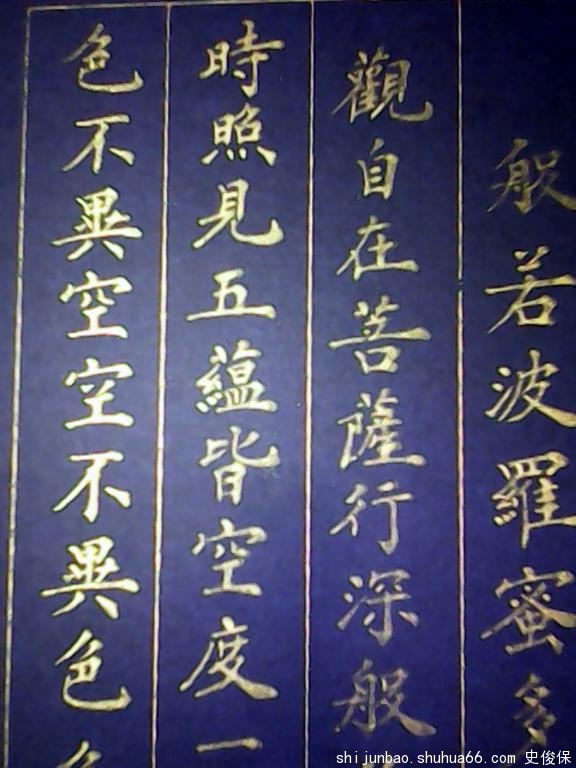 般若波羅蜜多
觀自在菩薩行深般
時照見五蘊皆空度一
色不異空空不異色
shijunbao.shuhua66.com 史俊保